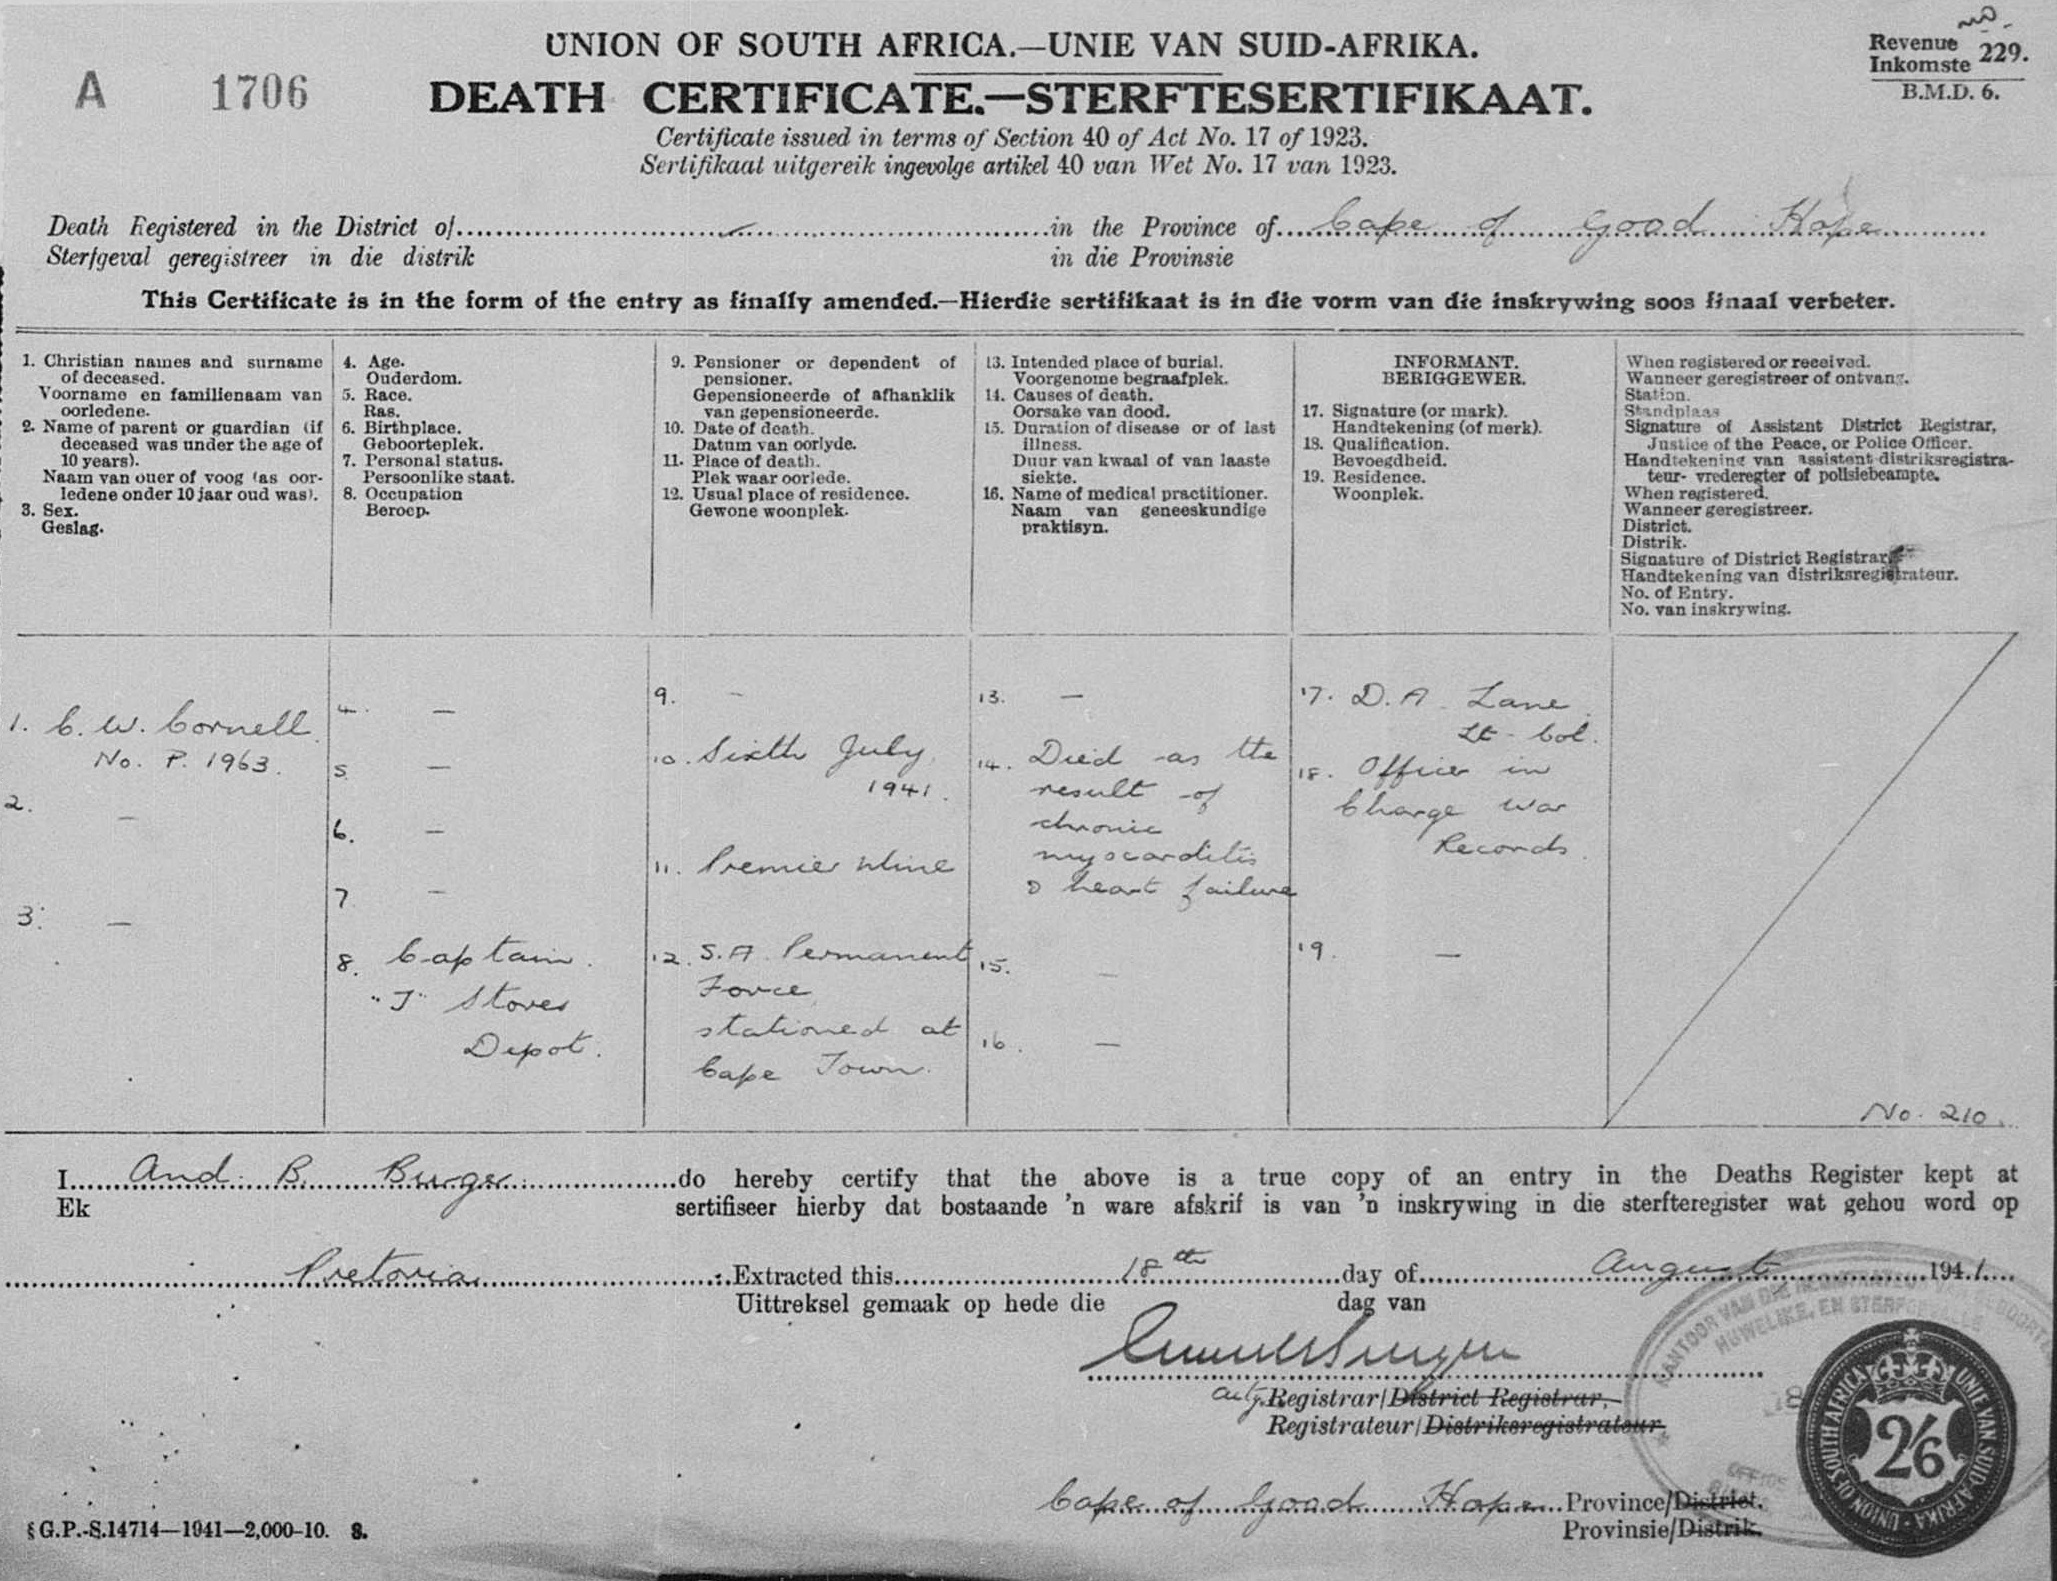 UNION OF SOUTH AFRICA.—UNIE VAN SUID-AFRIKA.
Revenue 229.
Inkomste
B.M.D. 6.
A 1706
DEATH CERTIFICATE.—STERFTESERTIFIKAAT.
Certificate issued in terms of Section 40 of Act No. 17 of 1923.
Sertifikaat uitgereik ingevolge artikel 40 van Wet No. 17 van 1923.
Death Registered in the District of in the Province of Cape of Good Hope
Sterfgeval geregistreer in die distrik in die Provinsie
This Certificate is in the form of the entry as finally amended.—Hierdie sertifikaat is in die vorm van die inskrywing soos finaal verbeter.
1. Christian names and surname
of deceased.
Voorname en familienaam van
oorledene.
2. Name of parent or guardian (if
deceased was under the age of
10 years).
Naam van ouer of voog (as oor-
ledene onder 10 jaar oud was).
3. Sex.
Geslag.
4. Age.
Ouderdom.
5. Race.
Ras.
6. Birthplace.
Geboorteplek.
7. Personal status.
Persoonlike staat.
8. Occupation
Beroep.
9. Pensioner or dependent of
pensioner.
Gepensioneerde of afhanklik
van gepensioneerde.
10. Date of death.
Datum van oorlyde.
11. Place of death.
Plek waar oorlede.
12. Usual place of residence.
Gewone woonplek.
13. Intended place of burial.
Voorgenome begraafplek.
14. Causes of death.
Oorsake van dood.
15. Duration of disease or of last
illness.
Duur van kwaal of van laaste
siekte.
16. Name of medical practitioner.
Naam van geneeskundige
praktisyn.
INFORMANT.
BERIGGEWER.
17. Signature (or mark).
Handtekening (of merk).
18. Qualification.
Bevoegdheid.
19. Residence.
Woonplek.
When registered or received.
Wanneer geregistreer of ontvang.
Station.
Standplaas
Signature of Assistant District Registrar,
Justice of the Peace, or Police Officer.
Handtekening van assistent-distriksregistra-
teur- vrederegter of polisiebeampte.
When registered.
Wanneer geregistreer.
District.
Distrik.
Signature of District Registrar
Handtekening van distriksregistrateur.
No. of Entry.
No. van inskrywing.
1. C. W. Cornell
No. P. 1963.
2. —
3. —
4. —
5. —
6. —
7 —
8. Captain.
"T" Stores
Depot.
9. —
10. Sixth July,
1941.
11. Premier Mine
12. S.A. Permanent
Force,
stationed at
Cape Town.
13. —
14. Died as the
result of
chronic
myocarditis
& heart failure
15. —
16. —
17. D. A. Lane
Lt-Col.
18. Officer in
Charge War
Records.
19. —
No. 210.
I And. B. Burger do hereby certify that the above is a true copy of an entry in the Deaths Register kept at
Ek sertifiseer hierby dat bostaande 'n ware afskrif is van 'n inskrywing in die sterfteregister wat gehou word op
Pretoria Extracted this 18th day of August 1941
Uittreksel gemaak op hede die dag van
Actg. Registrar/District Registrar,
Registrateur/Distriksregistrateur
Cape of Good Hope Province/District.
Provinsie/Distrik.
KANTOOR VAN DIE REGISTRATEUR VAN GEBOORTES
HUWELIKE, EN STERFGEVALLE
18
OFFICE
UNION OF SOUTH AFRICA · UNIE VAN SUID-AFRIKA
2/6
§ G.P.-S.14714—1941—2,000-10. S.